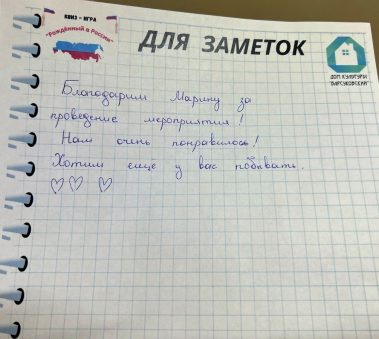 КВИЗ - ИГРА
"Рождённый в России"
ДЛЯ ЗАМЕТОК
ДОМ КУЛЬТУРЫ
"БАРСУКОВСКИЙ"
Благодарим Марину за
проведение мероприятия!
Нам очень понравилось!
Хотим еще у вас побывать.